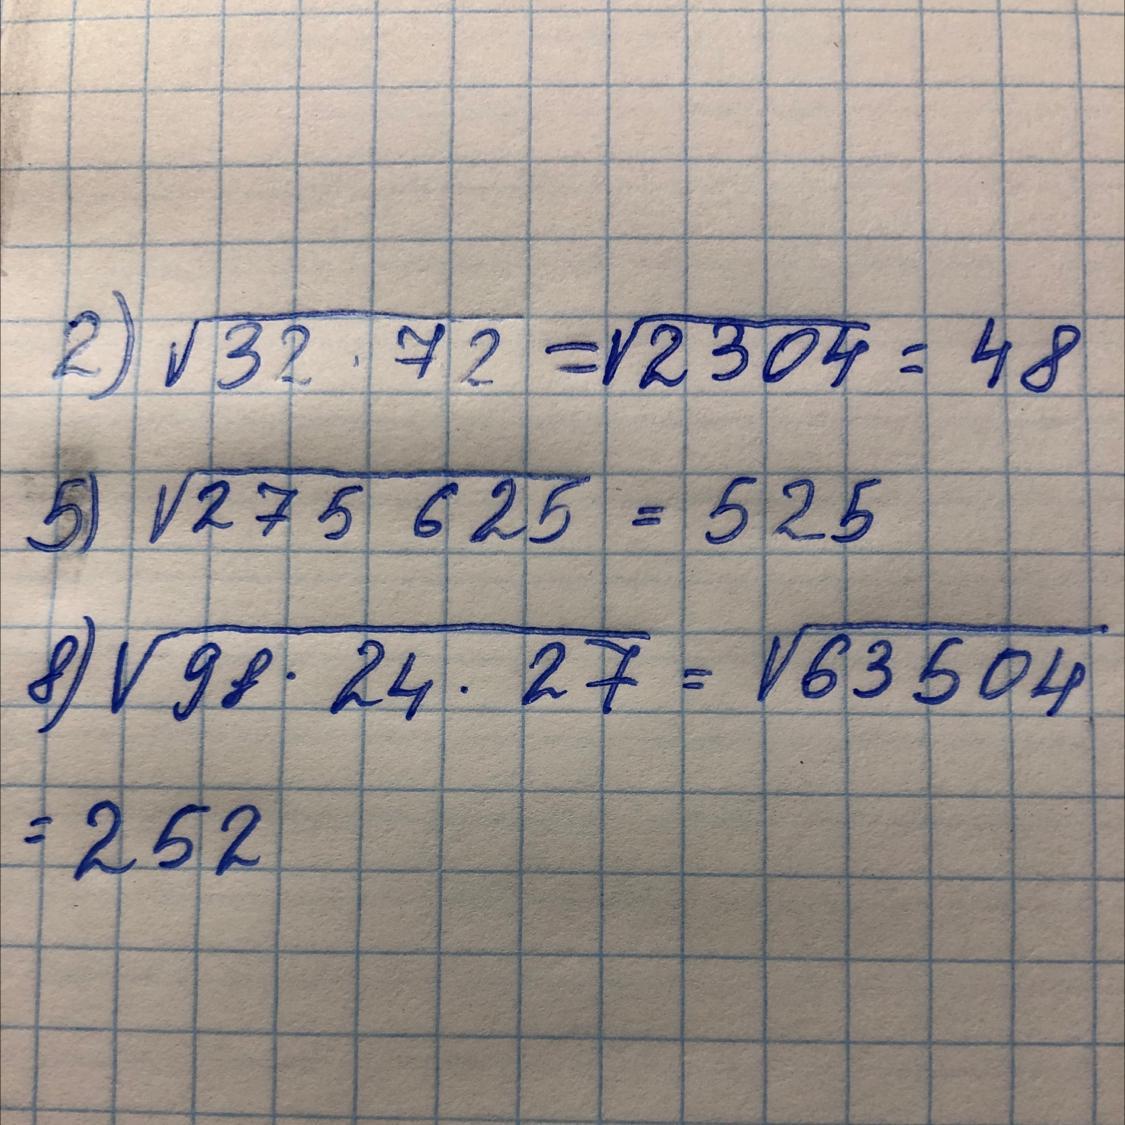 2) √32 · 72 = √2304 = 48
5) √275 625 = 525
8) √98 · 24 · 27 = √63504
= 252